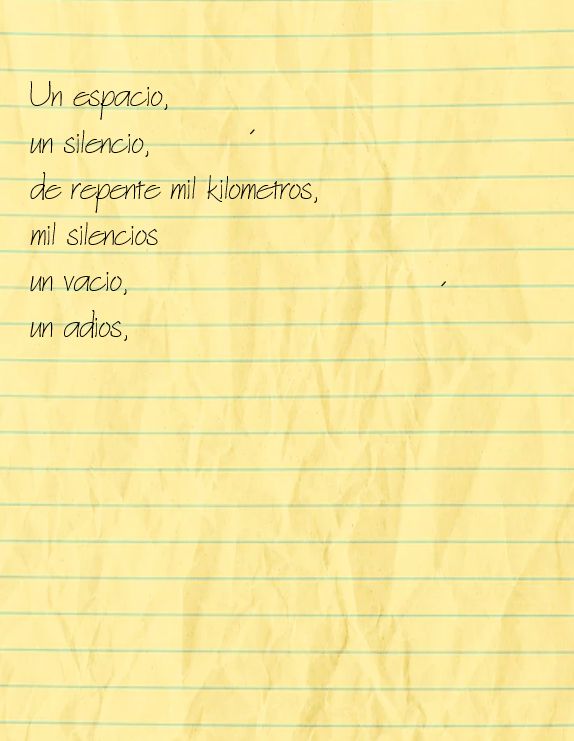 Un espacio,
un silencio,
de repente mil kilometros,
mil silencios
un vacio,
un adios,